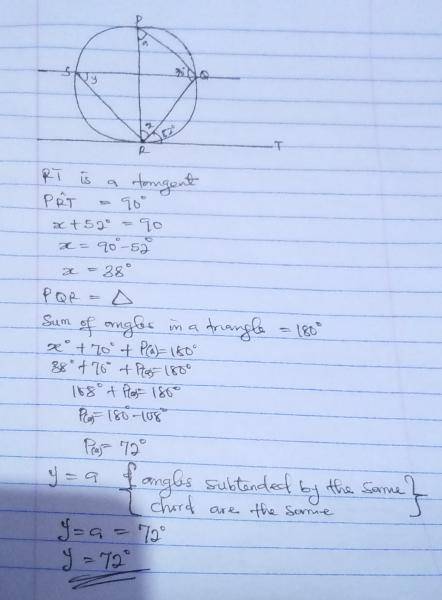 P
a
S
y
70°
Q
x
52°
R
T
RT is a tangent
PR̂T = 90°
x + 52° = 90
x = 90° - 52°
x = 38°
PQR = △
Sum of angles in a triangle = 180°
x° + 70° + P(a) = 180°
38° + 70° + P(a) = 180°
108° + P(a) = 180°
P(a) = 180° - 108°
P(a) = 72°
y = a { angles subtended by the same
chord are the same }
y = a = 72°
y = 72°